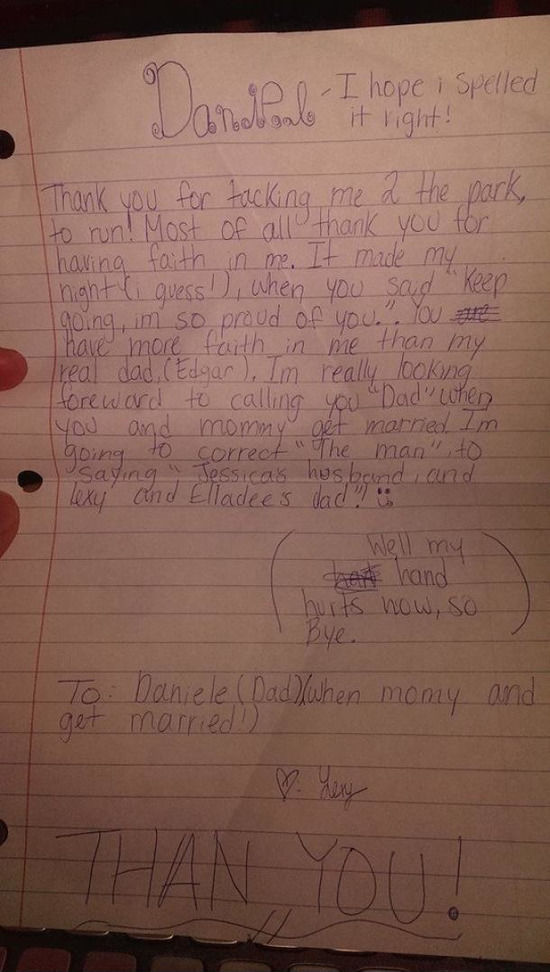 Daniel - I hope i spelled
it right!
Thank you for tacking me 2 the park,
to run! Most of all thank you for
having faith in me. It made my
night (i guess!), when you said "Keep
going, im so proud of you.". You are
have more faith in me than my
real dad, (Edgar). Im really looking
foreward to calling you "Dad" when
you and mommy get married. Im
going to correct "The man", to
saying "Jessica's husband, and
lexy and Elladee's dad"!
(Well my
hand
hurts now, so
Bye.)
To: Daniele (Dad)(when momy and
get married!)
♡: Lexy
THAN YOU!